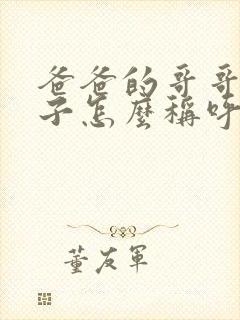 爸爸的哥哥
子怎麼稱呼
董友軍